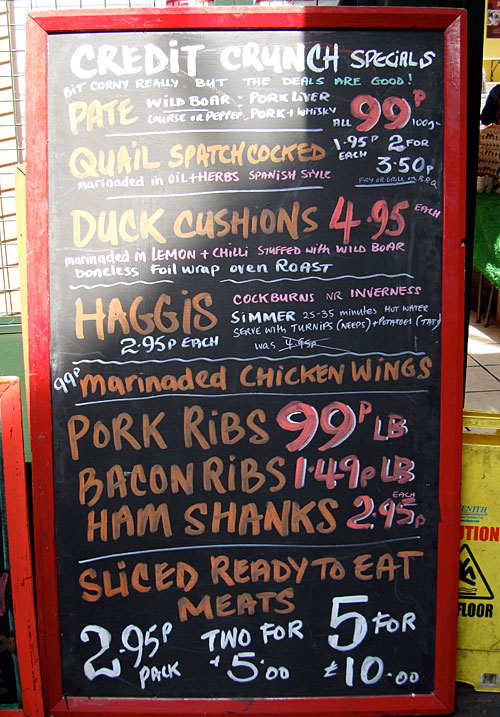 CREDIT CRUNCH SPECIALS
BIT CORNY REALLY BUT THE DEALS ARE GOOD!
PATE WILD BOAR - PORK LIVER
COURSE OR PEPPER, PORK + WHISKY
ALL 99P 100g
QUAIL SPATCHCOCKED
marinaded in OIL + HERBS SPANISH STYLE
1.95P EACH 2 FOR 3.50P
FRY OR GRILL B.B.Q
DUCK CUSHIONS 4.95 EACH
marinaded in LEMON + CHILLI STUFFED with WILD BOAR
boneless foil wrap oven ROAST
HAGGIS COCKBURNS NR INVERNESS
SIMMER 25-35 minutes HOT WATER
SERVE with TURNIPS (NEEPS) + POTATOES (TATS)
2.95P EACH was 4.95P
99P marinaded CHICKEN WINGS
PORK RIBS 99P LB
BACON RIBS 1.49p LB
HAM SHANKS 2.95p EACH
SLICED READY TO EAT
MEATS
2.95P PACK TWO FOR £5.00 5 FOR £10.00
ZENITH
UTION
FLOOR